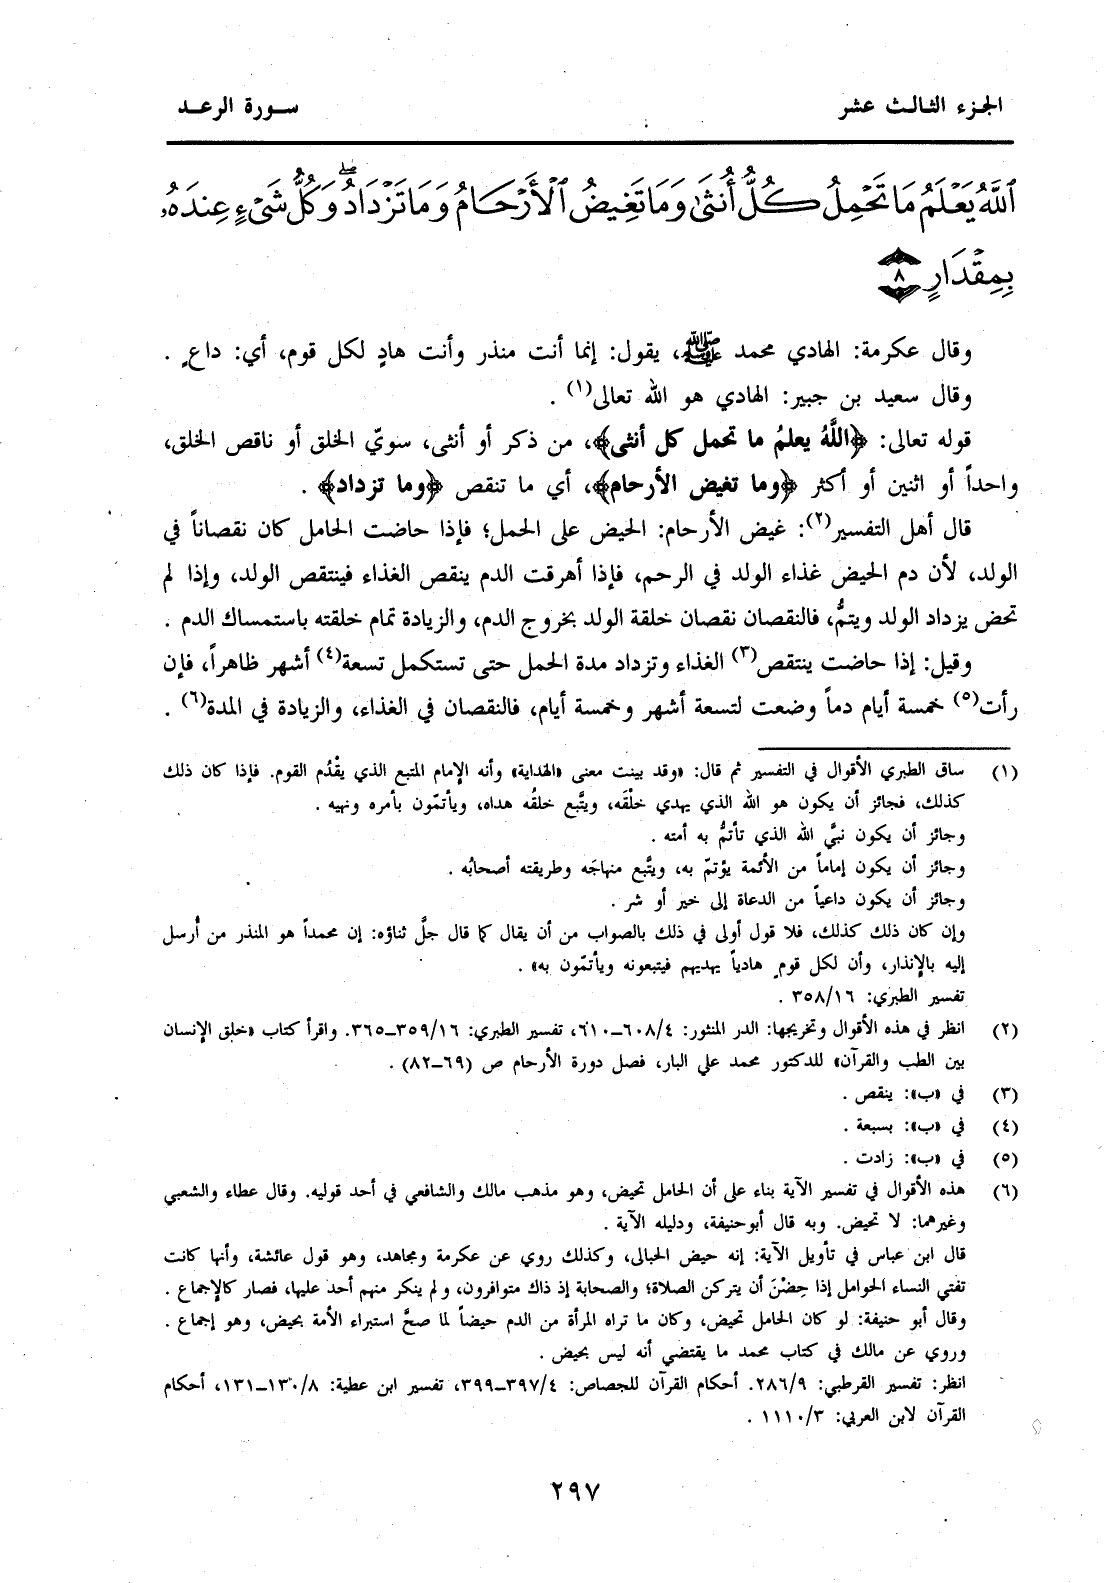 الجزء الثالث عشر
سورة الرعد
ٱللَّهُ يَعْلَمُ مَا تَحْمِلُ كُلُّ أُنثَىٰ وَمَا تَغِيضُ ٱلْأَرْحَامُ وَمَا تَزْدَادُ ۖ وَكُلُّ شَىْءٍ عِندَهُۥ
بِمِقْدَارٍ ٨
وقال عكرمة: الهادي محمد ﷺ، يقول: إنما أنت منذر وأنت هادٍ لكل قوم، أي: داعٍ .
وقال سعيد بن جبير: الهادي هو الله تعالى(١) .
قوله تعالى: ﴿اللَّهُ يعلمُ ما تحمل كل أنثى﴾، من ذكر أو أنثى، سويّ الخلق أو ناقص الخلق،
واحداً أو اثنين أو أكثر ﴿وما تغيض الأرحام﴾، أي ما تنقص ﴿وما تزداد﴾ .
قال أهل التفسير(٢): غيض الأرحام: الحيض على الحمل؛ فإذا حاضت الحامل كان نقصاناً في
الولد، لأن دم الحيض غذاء الولد في الرحم، فإذا أهرقت الدم ينقص الغذاء فينتقص الولد، وإذا لم
تحض يزداد الولد ويتمُّ، فالنقصان نقصان خلقة الولد بخروج الدم، والزيادة تمام خلقته باستمساك الدم .
وقيل: إذا حاضت ينتقص(٣) الغذاء وتزداد مدة الحمل حتى تستكمل تسعة(٤) أشهر ظاهراً، فإن
رأت(٥) خمسة أيام دماً وضعت لتسعة أشهر وخمسة أيام، فالنقصان في الغذاء، والزيادة في المدة(٦) .
(١) ساق الطبري الأقوال في التفسير ثم قال: «وقد بينت معنى «الهداية» وأنه الإمام المتبع الذي يقْدُم القوم. فإذا كان ذلك
كذلك، فجائز أن يكون هو الله الذي يهدي خلْقَه، ويتَّبع خلقُه هداه، ويأتمّون بأمره ونهيه .
وجائز أن يكون نبيَّ الله الذي تأتمُّ به أمته .
وجائز أن يكون إماماً من الأئمة يؤتمّ به، ويتَّبع منهاجَه وطريقته أصحابُه .
وجائز أن يكون داعياً من الدعاة إلى خير أو شر .
وإن كان ذلك كذلك، فلا قول أولى في ذلك بالصواب من أن يقال كما قال جلَّ ثناؤه: إن محمداً هو المنذر من أُرسل
إليه بالإنذار، وأن لكل قومٍ هادياً يهديهم فيتبعونه ويأتمّون به» .
تفسير الطبري: ٣٥٨/١٦ .
(٢) انظر في هذه الأقوال وتخريجها: الدر المنثور: ٦٠٨/٤ـ٦١٠، تفسير الطبري: ٣٥٩/١٦ـ٣٦٥. واقرأ كتاب «خلق الإنسان
بين الطب والقرآن» للدكتور محمد علي البار، فصل دورة الأرحام ص (٦٩ـ٨٢) .
(٣) في «ب»: ينقص .
(٤) في «ب»: بسبعة .
(٥) في «ب»: زادت .
(٦) هذه الأقوال في تفسير الآية بناء على أن الحامل تحيض، وهو مذهب مالك والشافعي في أحد قوليه. وقال عطاء والشعبي
وغيرهما: لا تحيض. وبه قال أبوحنيفة، ودليله الآية .
قال ابن عباس في تأويل الآية: إنه حيض الحبالى، وكذلك روي عن عكرمة ومجاهد، وهو قول عائشة، وأنها كانت
تفتي النساء الحوامل إذا حِضْنَ أن يتركن الصلاة؛ والصحابة إذ ذاك متوافرون، ولم ينكر منهم أحد عليها، فصار كالإجماع .
وقال أبو حنيفة: لو كان الحامل تحيض، وكان ما تراه المرأة من الدم حيضاً لما صحَّ استبراء الأمة بحيض، وهو إجماع .
وروي عن مالك في كتاب محمد ما يقتضي أنه ليس بحيض .
انظر: تفسير القرطبي: ٢٨٦/٩. أحكام القرآن للجصاص: ٣٩٧/٤ـ٣٩٩، تفسير ابن عطية: ١٣٠/٨ـ١٣١، أحكام
القرآن لابن العربي: ١١١٠/٣ .
٢٩٧